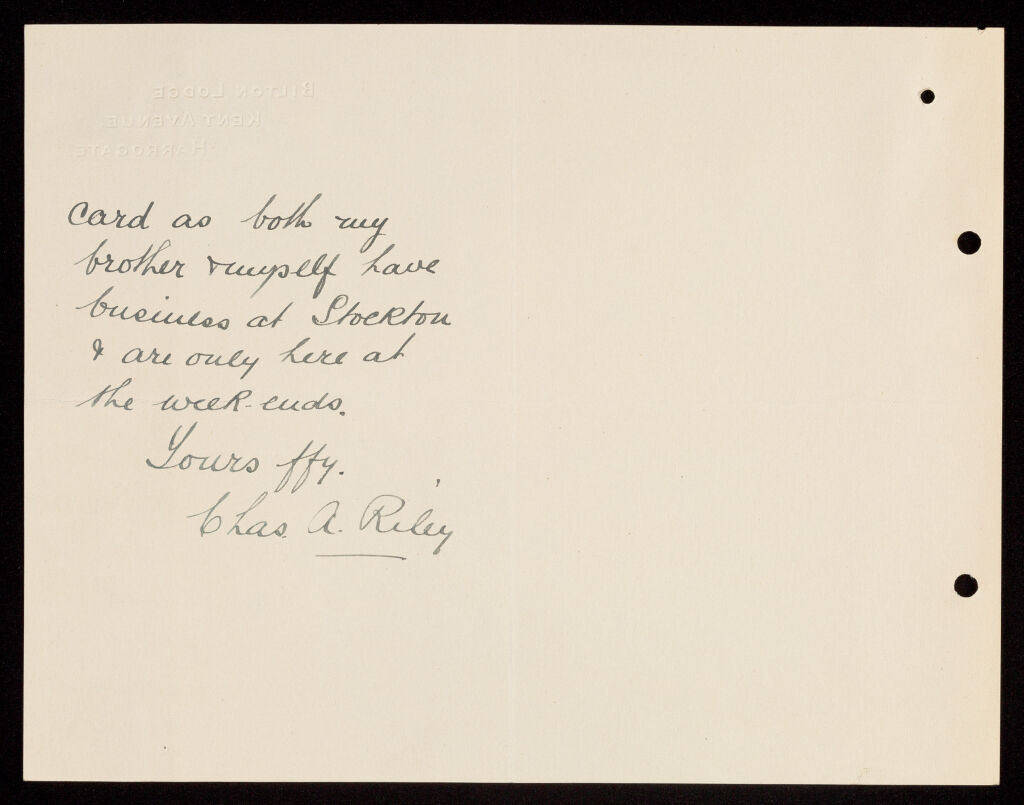 BILTON LODGE
KENT AVENUE
HARROGATE
card as both my
brother & myself have
business at Stockton
& are only here at
the week-ends.
Yours ffy.
Chas. A. Riley